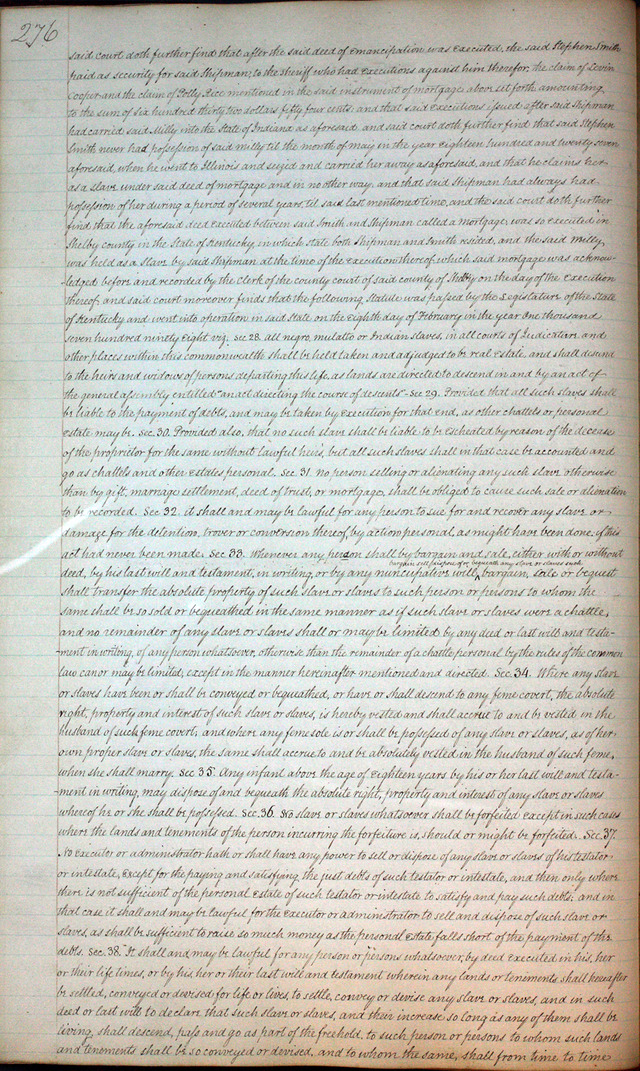 276
said court doth further find that after the said deed of emancipation was executed, the said Stephen Smith
paid as security for said Shipman, to the sheriff who had executions against him therefor, the claim of Levin
Cooper and the claim of Polly Rice mentioned in the said instrument of mortgage above set forth amounting
to the sum of six hundred thirty two dollars fifty four cents. and that said executions issued after said Shipman
had carried said Milly into the State of Indiana as aforesaid. and said court doth further find that said Stephen
Smith never had possession of said Milly til the month of may in the year eighteen hundred and twenty seven
aforesaid, when he went to Illinois and seized and carried her away as aforesaid, and that he claims her
as a slave under said deed of mortgage and in no other way. and that said Shipman had always had
possession of her during a period of several years, til said last mentioned time, and the said court doth further
find that the aforesaid deed executed between said Smith and Shipman called a mortgage, was so executed in
Shelby county in the State of Kentucky, in which state both Shipman and Smith resided, and the said Milly,
was held as a slave by said Shipman at the time of the execution thereof, which said mortgage was acknow-
ledged before and recorded by the Clerk of the county court of said county of Shelby on the day of the execution
thereof, and said court moreover finds that the following Statute was passed by the Legislature of the State
of Kentucky and went into operation in said State on the eighth day of February in the year one thousand
seven hundred ninety eight viz: Sec 28. All negro, mulatto or Indian slaves, in all courts of Judicature and
other places within this commonwealth shall be held taken and adjudged to be real estate, and shall descend
to the heirs and widows of persons departing this life, as lands are directed to descend in and by an act of
the general assembly entitled "an act directing the course of descents" Sec 29. Provided that all such slaves shall
be liable to the payment of debts, and may be taken by execution for that end, as other chattels or personal
estate may be. Sec. 30. Provided also, that no such slave shall be liable to be escheated by reason of the decease
of the proprietor for the same without lawful heirs, but all such slaves shall in that case be accounted and
go as chattels and other estates personal. Sec. 31. No person selling or alienating any such slave otherwise
than by gift, marrage settlement, deed of trust, or mortgage, shall be obliged to cause such sale or alienation
to be recorded. Sec 32. it shall and may be lawful for any person to sue for and recover any slave or
damage for the detention, trover or conversion thereof, by action personal, as might have been done, if this
act had never been made. Sec 33. Whenever any person shall by bargain and sale, either with or without
deed, by his last will and testament, in writing, or by any nuncupative will, bargain, sale or bequest
bargain sell dispose of or bequeath any slave or slaves such
shall transfer the absolute property of such slave or slaves to such person or persons to whom the
same shall be so sold or bequeathed in the same manner as if such slave or slaves were a chattle,
and no remainder of any slave or slaves shall or may be limited by any deed or last will and testa-
-ment in writing, of any person whatsoever, otherwise than the remainder of a chattle personal by the rules of the common
law can or may be limited, except in the manner hereinafter mentioned and directed. Sec. 34. Where any slave
or slaves have been or shall be conveyed or bequeathed, or have or shall descend to any feme covert, the absolute
right, property and interest of such slave or slaves, is hereby vested and shall accrue to and be vested in the
husband of such feme covert, and where any feme sole is or shall be possessed of any slave or slaves, as of her
own proper slave or slaves, the same shall accrue to and be absolutely vested in the husband of such feme,
when she shall marry. Sec 35. Any infant above the age of eighteen years by his or her last will and testa-
-ment in writing, may dispose of and bequeath the absolute right, property and interest of any slave or slaves
whereof he or she shall be possessed. Sec. 36. No slave or slaves whatsoever shall be forfeited except in such cases
where the lands and tenements of the person incurring the forfeiture is, should or might be forfeited. Sec. 37.
No executor or administrator hath or shall have any power to sell or dispose of any slave or slaves of his testator
or intestate, except for the paying and satisfying the just debts of such testator or intestate, and then only where
there is not sufficient of the personal estate of such testator or intestate to satisfy and pay such debts: and in
that case it shall and may be lawful for the executor or administrator to sell and dispose of such slave or
slaves, as shall be sufficient to raise so much money as the personal estate falls short of the payment of the
debts. Sec. 38. It shall and may be lawful for any person or persons whatsoever, by deed executed in his, her
or their life times, or by his, her or their last will and testament wherein any lands or tenements shall hereafter
be settled, conveyed or devised for life or lives, to settle, convey or devise any slave or slaves, and in such
deed or last will to declare that such slave or slaves, and their increase so long as any of them shall be
living, shall descend, pass and go as part of the freehold, to such person or persons to whom such lands
and tenements shall be so conveyed or devised, and to whom the same, shall from time to time